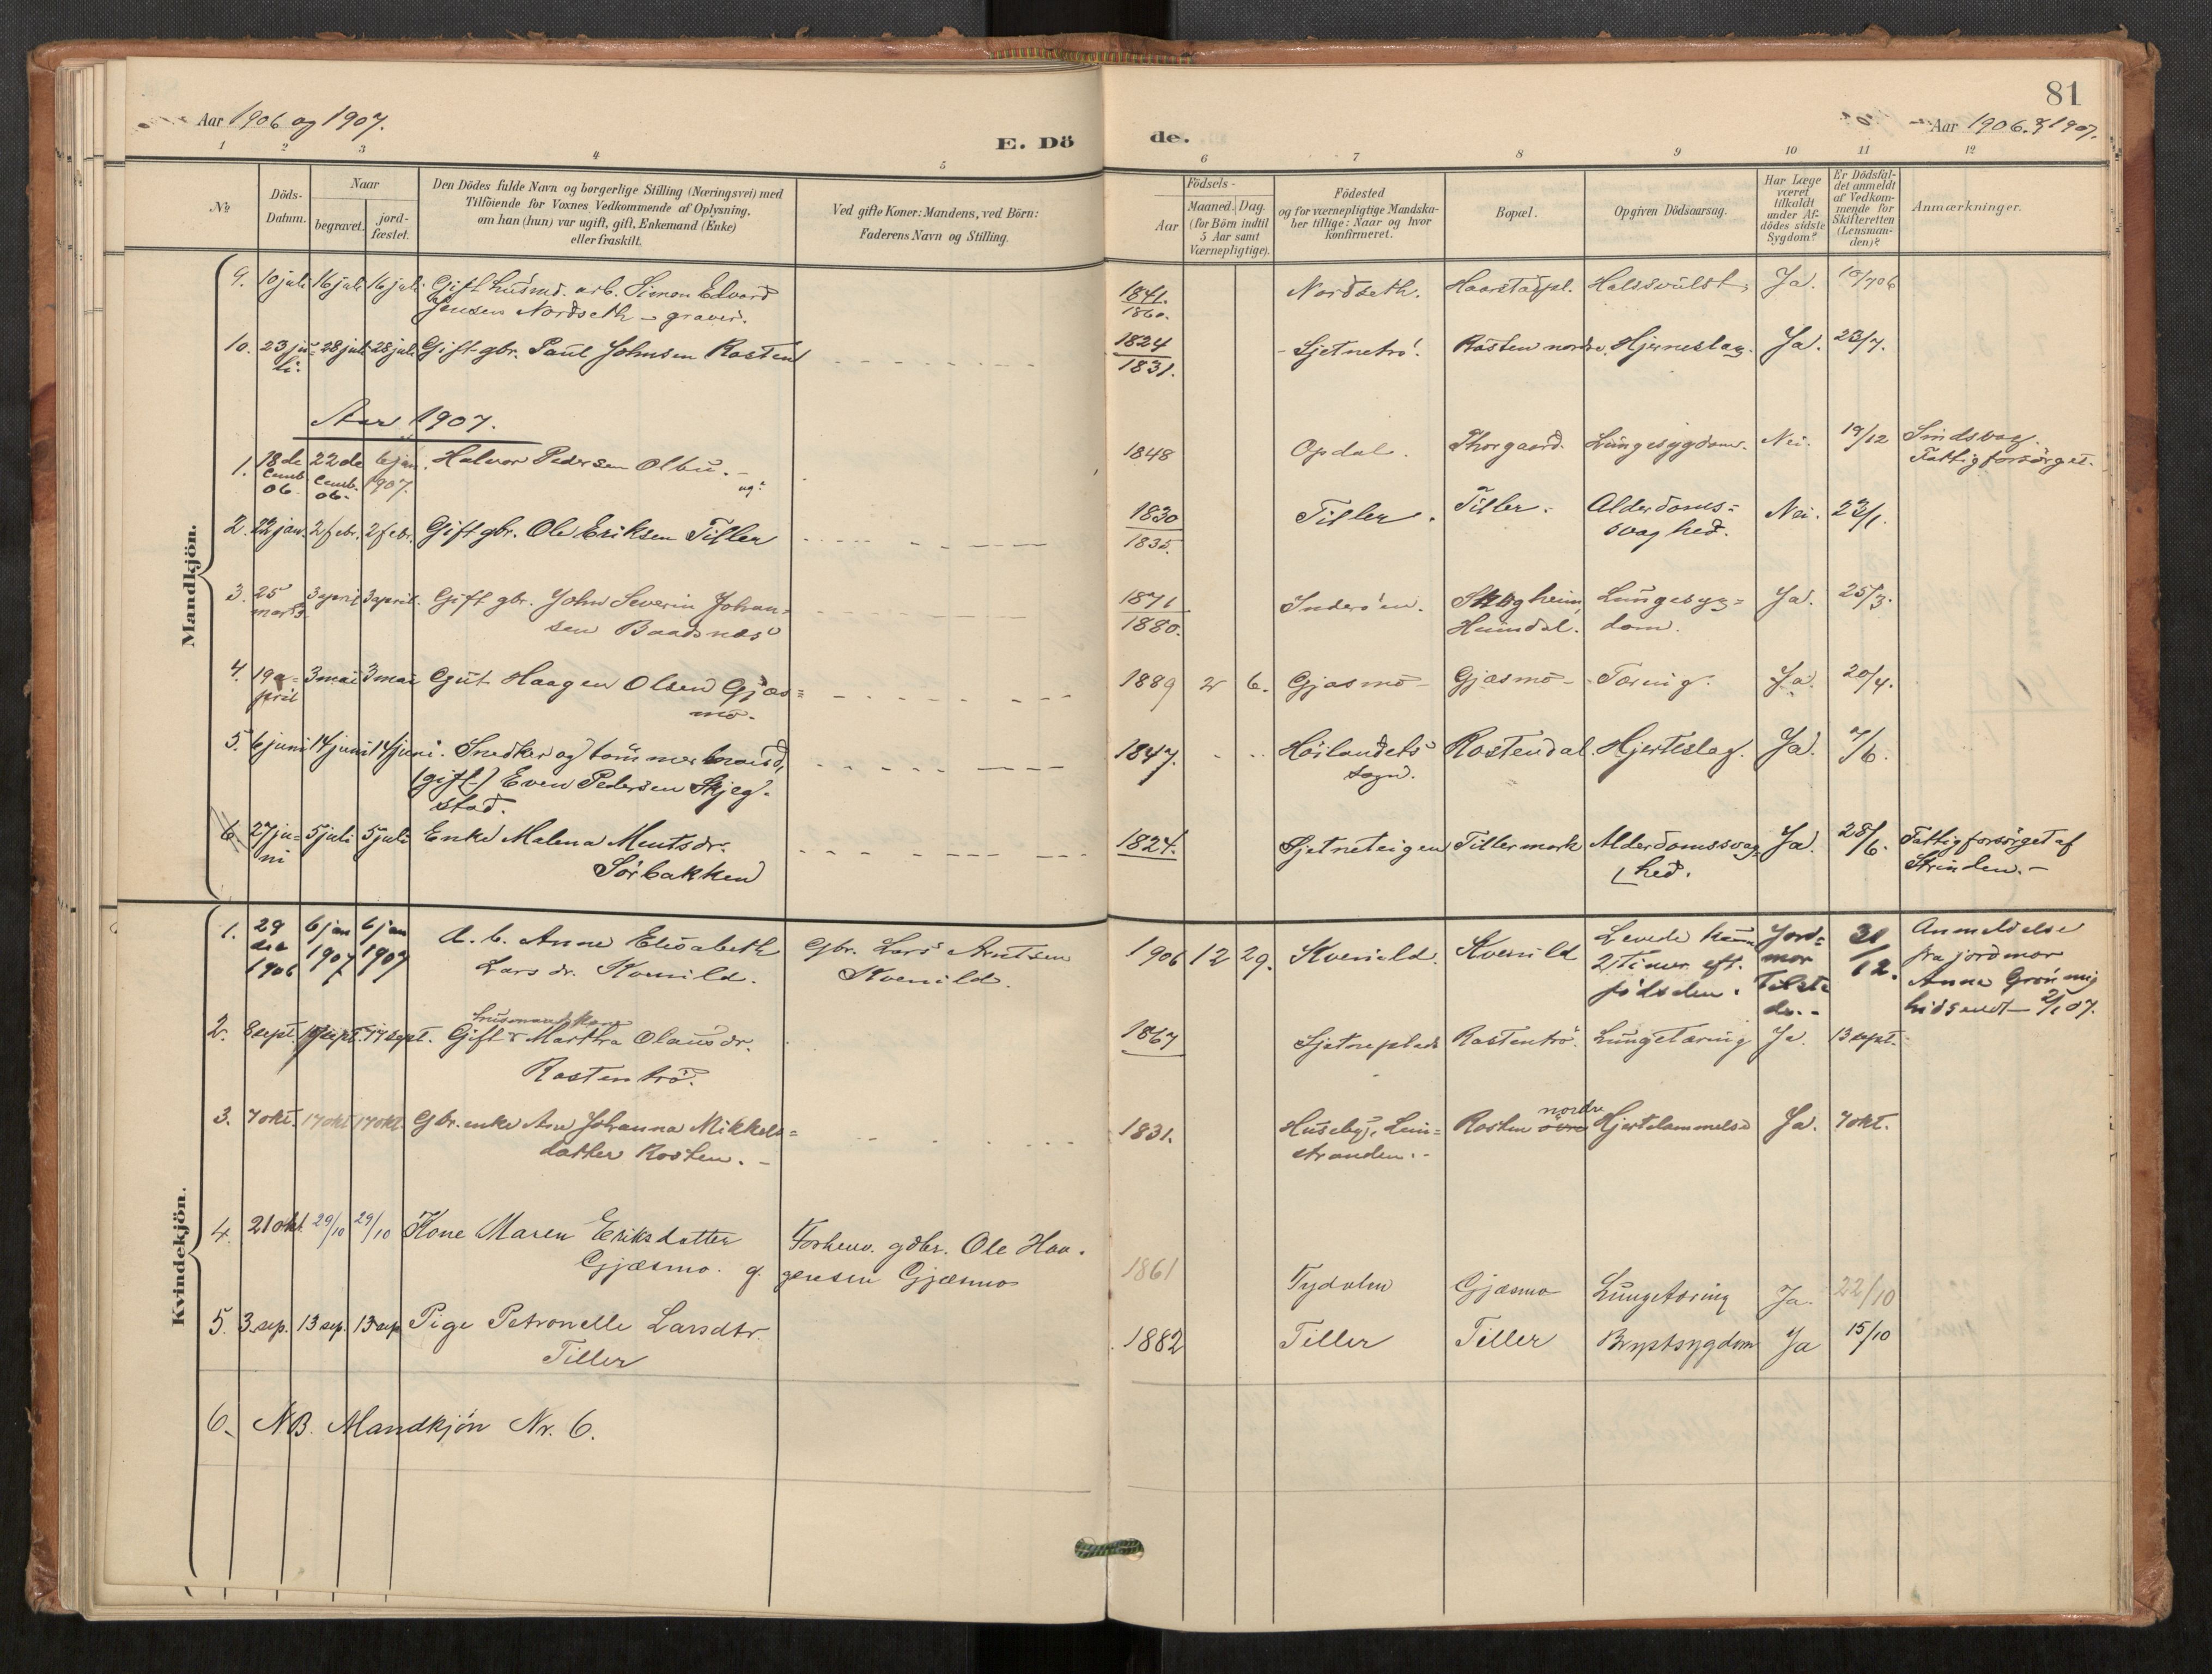 81
Aar 1906 og 1907.
E. Dö
de.
Aar 1906 & 1907.
1 2 3 4 5 6 7 8 9 10 11 12
No
Döds-
Datum.
Naar
begravet.
jord-
fæstet.
Den Dödes fulde Navn og borgerlige Stilling (Næringsvei) med
Tilföiende for Voxnes Vedkommende af Oplysning,
om han (hun) var ugift, gift, Enkemand (Enke)
eller fraskilt.
Ved gifte Koner: Mandens, ved Börn:
Faderens Navn og Stilling.
Födsels-
Aar
Maaned. Dag.
(for Börn indtil
5 Aar samt
Værnepligtige).
Födested
og for værnepligtige Mandska-
ber tillige: Naar og hvor
konfirmeret.
Bopæl.
Opgiven Dödsaarsag.
Har Læge
været
tilkaldt
under Af-
dödes sidste
Sygdom?
Er Dödsfal-
det anmeldt
af Vedkom-
mende for
Skifteretten
(Lensman-
den)?
Anmærkninger.
Mandkjön.
9. 10 juli 16 juli 16 juli Gift husmd. arb. Simon Edvard 1841. Nordseth. Haarstadpl. Halssvulst. Ja. 10/7 06
Jensen Nordseth - graver. 1860.
10. 23 ju= 28 juli 28 juli Gift gbr. Paul Johnsen Rosten 1824 Sjetnetrö. Rosten nordre. Hjerneslag. Ja. 23/7.
li. 1831.
Aar 1907.
1. 18 de 22 de 6 jan. Halvor Pedersen Olbu. - 1848 Opdal. Thorgaard. Lungesygdom. Nei. 19/12 Sindsvag.
cemb cemb. 1907. ug. Fattigforsörget.
06. 06.
2. 22 jan. 2 febr. 2 febr. Gift gbr. Ole Eriksen Tiller 1830 Tiller. Tiller. Alderdoms= Nei. 23/1.
1835. svaghed.
3. 25 3 april 3 april. Gift gbr. John Severin Johan= 1871 Inderöen. Skogheim, Lungesyg= Ja. 25/3.
marts. sen Baadsnæs 1880. Heimdal. dom.
4. 19 a= 3 mai 3 mai Gut Haagen Olsen Gjæs= 1889 2 6. Gjæsmo Gjæsmo Tæring. Ja. 20/4.
pril mo.
5. 6 juni 14 juni 14 juni. Snedker og tömmermand, 1847. Höilandets Rostendal. Hjerteslag. Ja. 7/6.
(gift) Even Pedersen Skjeg= sogn.
stad.
6. 27 ju= 5 juli 5 juli Enke Malena Mentsdr. 1824. Sjetneteigen Tillermark Alderdomssvag Ja. 28/6. Fattigforsörget af
ni Sörbakken hed. Strinden. -
Kvindekjön.
1. 29 6 jan 6 jan d. b. Anne Elisabeth Gbr. Lars Arntsen 1906 12 29. Kvenild. Kvenild Levede kun Jord= 31/12. Anmeldelse
dec 1907 1907 Larsdr. Kvenild. Kvenild. 2 Timer eft. mor fra jordmor
1906 födselen. Tilste Anna Grönning
de. - hidsendt - 2/1 07.
husmandskone
2. 8 sept. 17 sept. 17 sept. Gift Martha Olausdr. 1867 Sjetneplads Rostentrö. Lungetæring Ja. 13 sept.
Rostentrö.
3. 7 okt. 17 okt 17 okt Gbr. enke Ane Johanna Mikkels= 1831. Huseby, Lein= Rosten nordre Hjertelammelse Ja. 7 okt.
datter Rosten. - stranden. -
4. 21 okt. 29/10 29/10 Kone Maren Eriksdatter Forhenv. gdbr. Ole Haa-
Gjæsmo. g. gensen Gjæsmo 1861 Tydalen Gjæsmo Lungetæring Ja. 22/10
5. 3. sep. 13 sep. 13 sep Pige Petronelle Larsdtr. 1882 Tiller Tiller Brystsygdom Ja 15/10
Tiller
6. NB. Mandkjön Nr. 6.